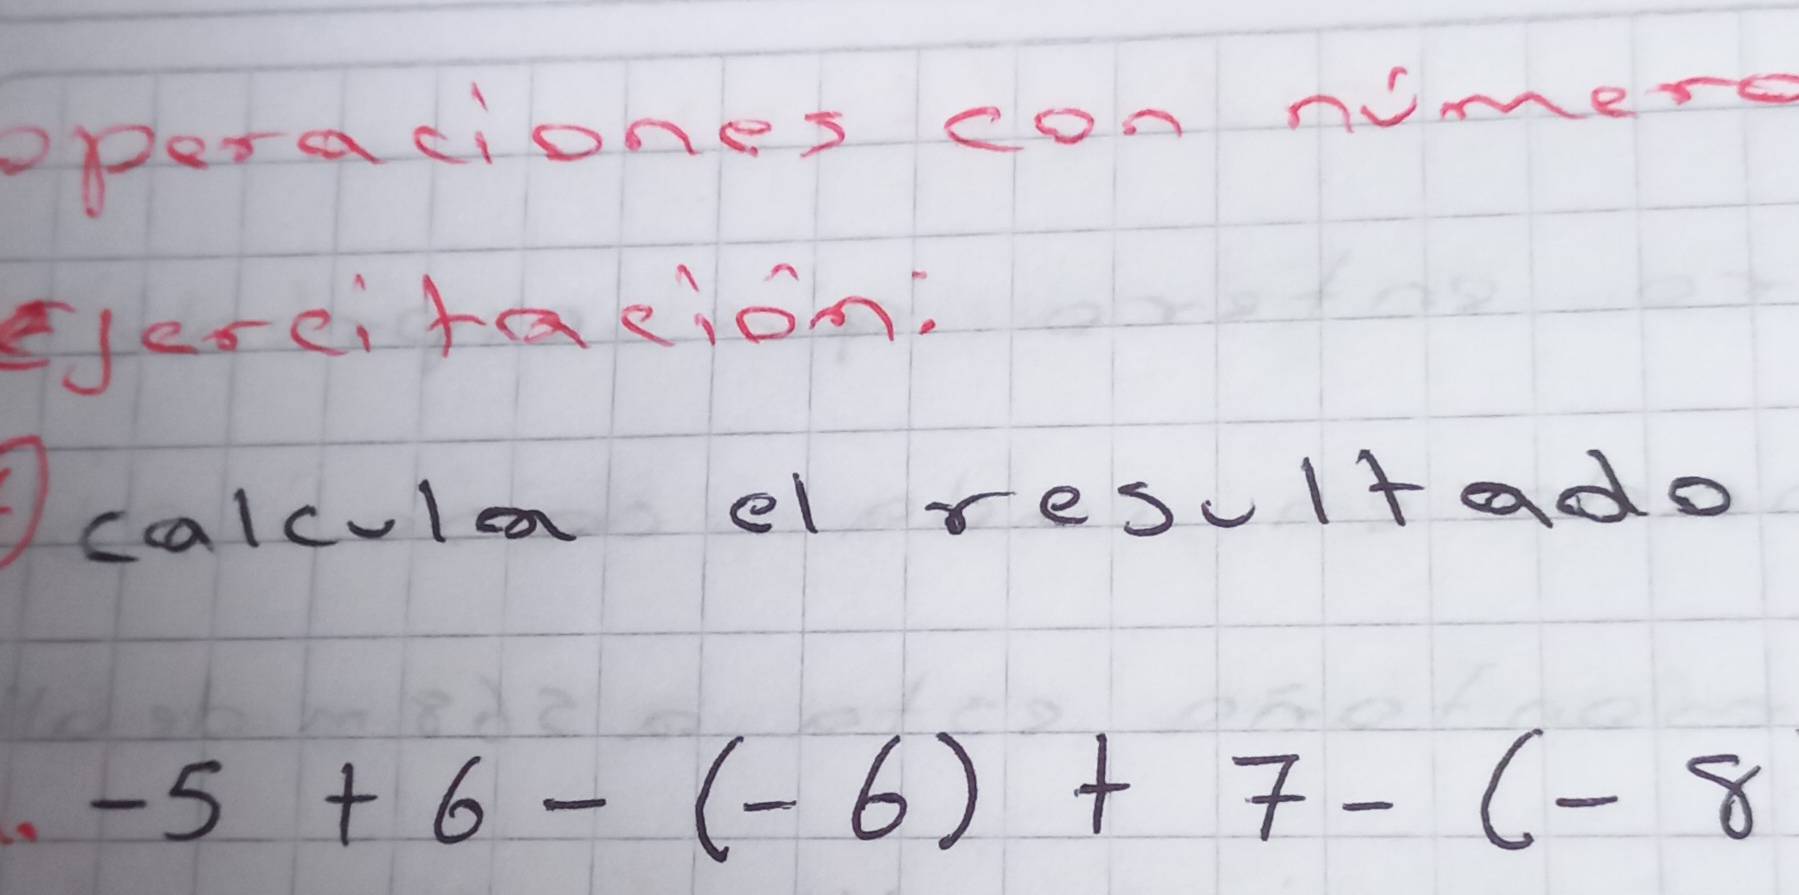 operaciones con número
ejercitación:
calcula el resultado
-5 + 6 - (-6) + 7 - (-8